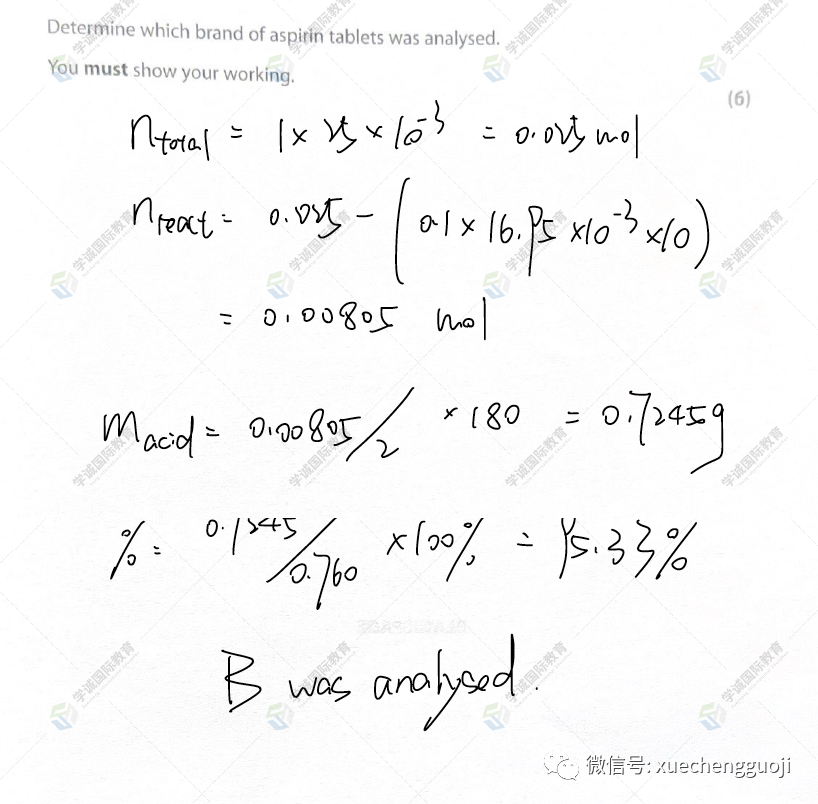 Determine which brand of aspirin tablets was analysed.
You must show your working.
(6)
n total = 1 × 25 × 10⁻³ = 0.025 mol
n react = 0.025 - (0.1 × 16.95 × 10⁻³ × 10)
= 0.00805 mol
m acid = 0.00805/2 × 180 = 0.7245g
% = 0.7245/0.760 × 100% = 95.33%
B was analysed.
学诚国际教育
微信号: xuechengguoji